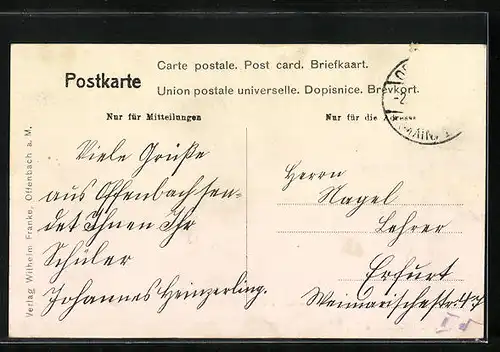 Postkarte
Carte postale. Post card. Briefkaart.
Union postale universelle. Dopisnice. Brevkort.
Nur für Mitteilungen
Nur für die Adresse
Viele Grüße
aus Offenbach sen-
det Ihnen Ihr
Schüler
Johannes Heinzerling.
Herrn
Nagel
Lehrer
Erfurt
Weimarischestr.
Verlag Wilhelm Franke, Offenbach a. M.